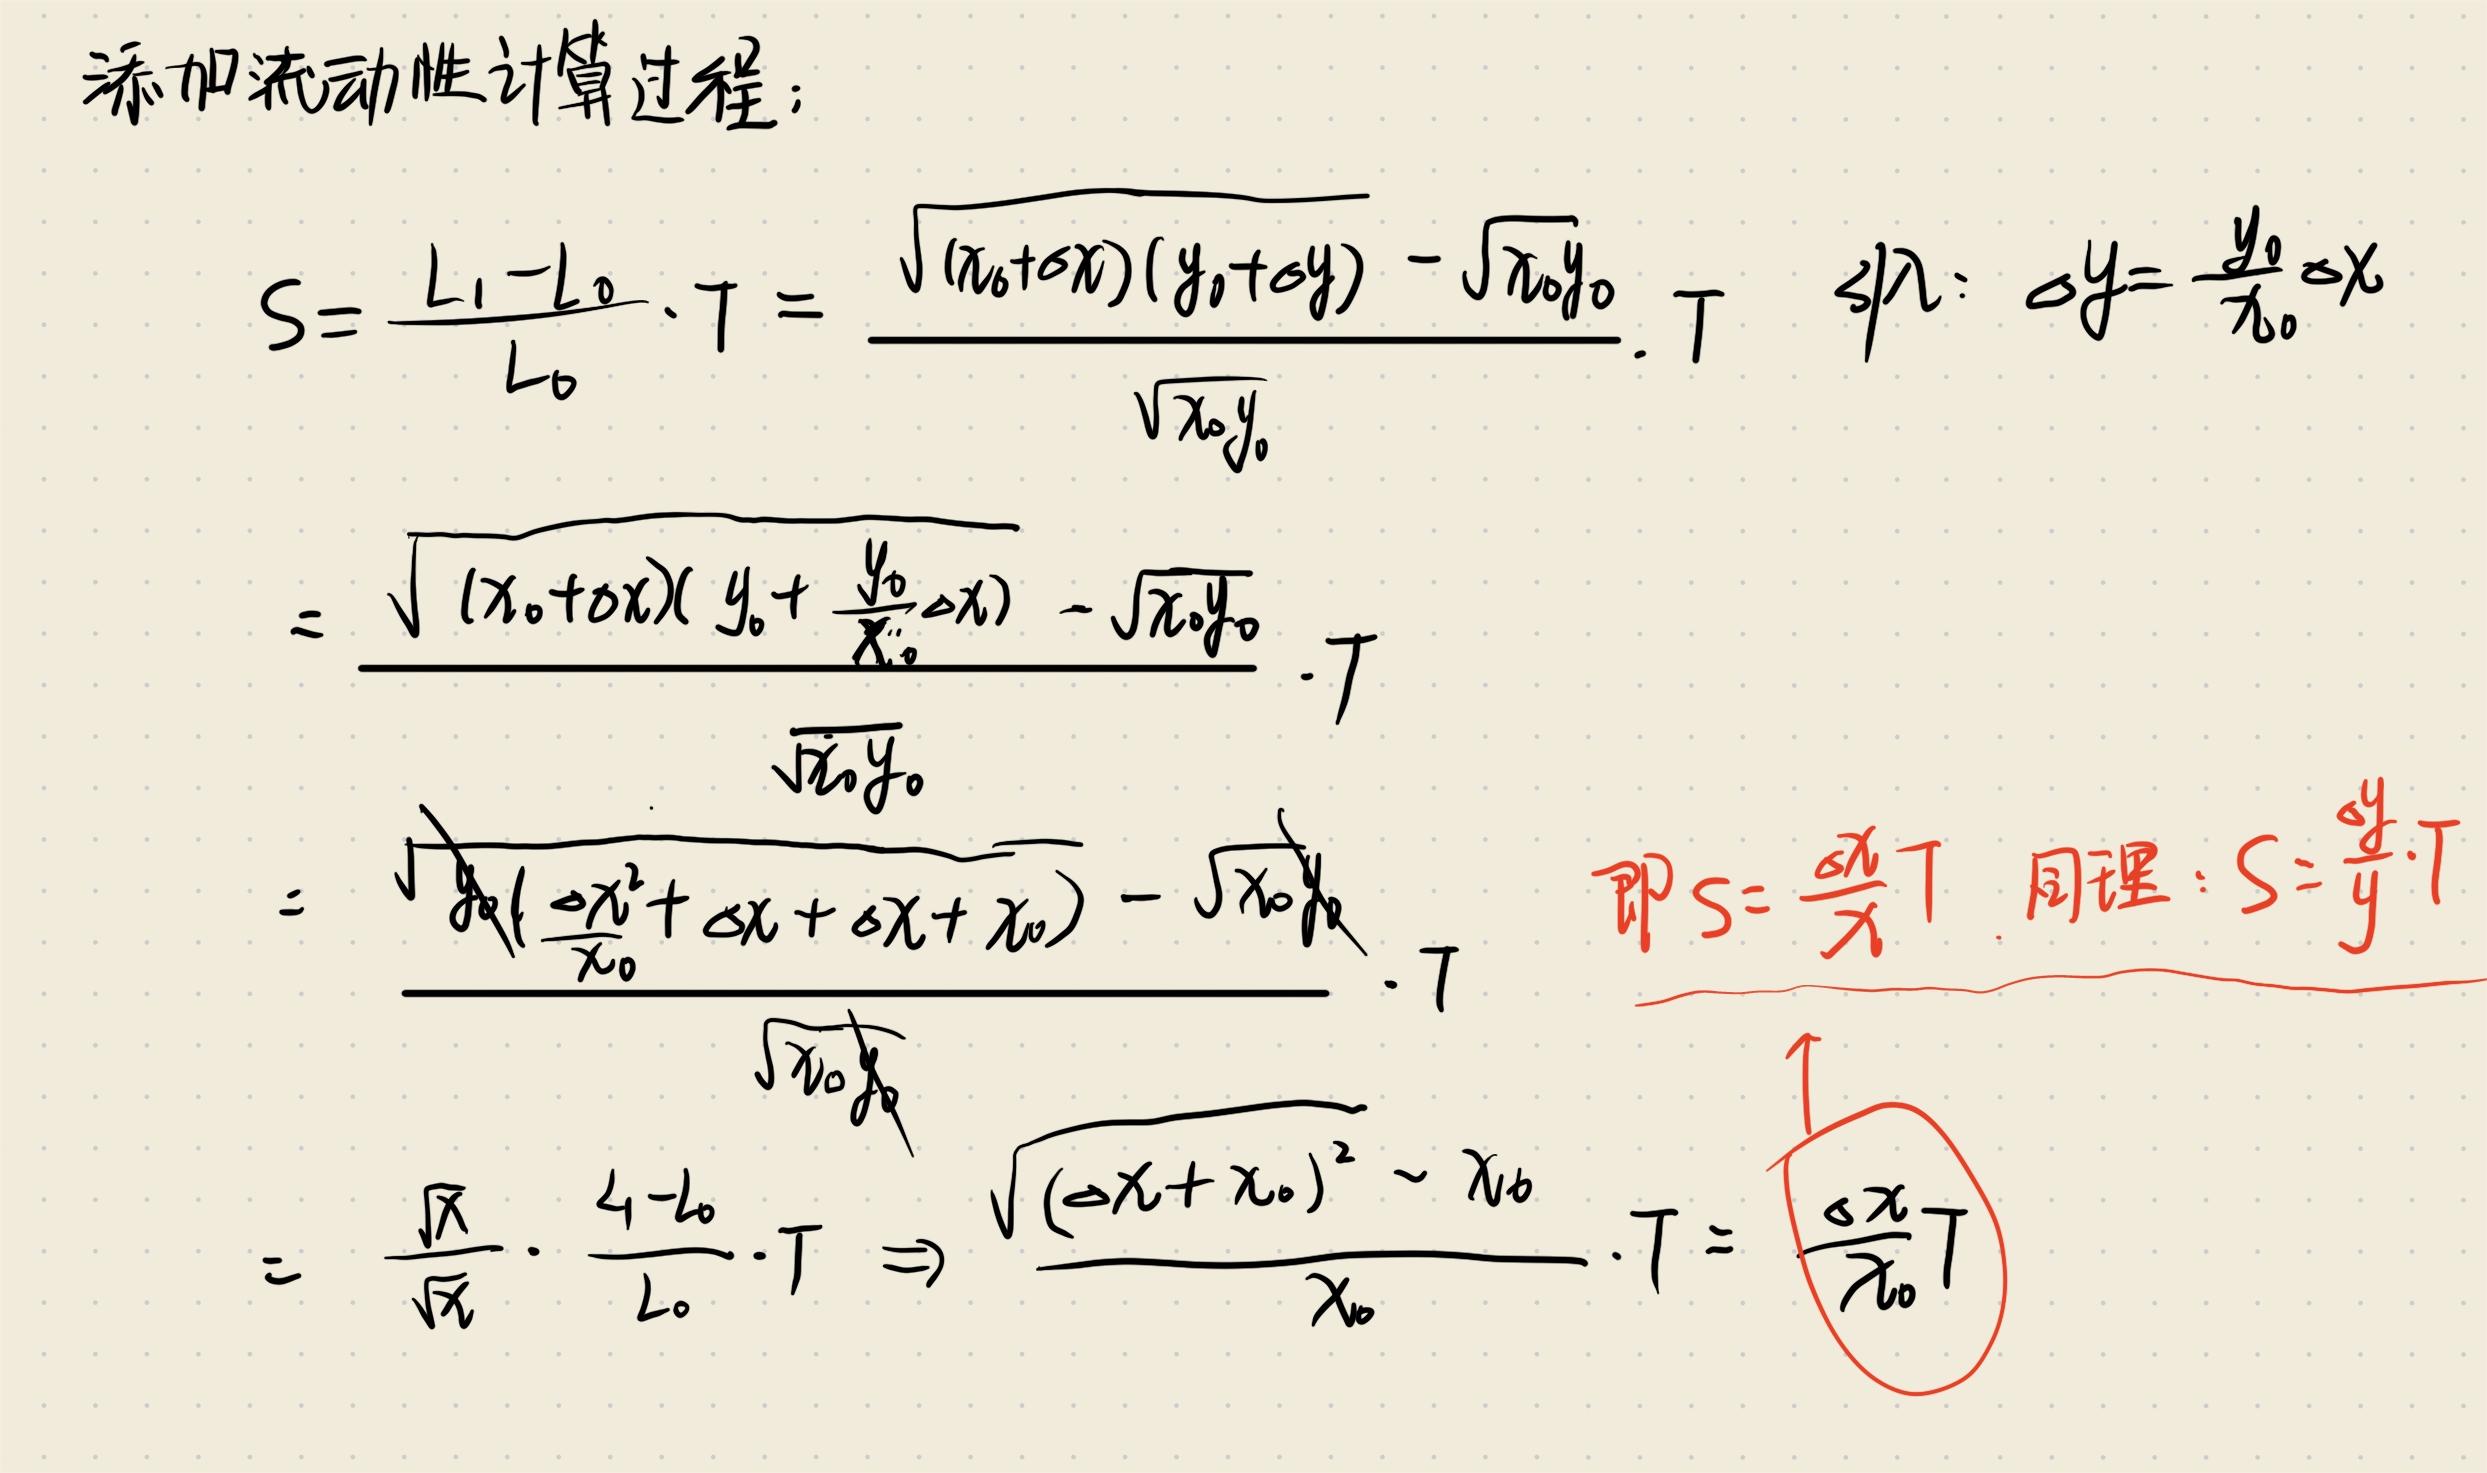 添加流动性计算过程:
S = (L₁ - L₀)/L₀ · T = (√((x₀+△x)(y₀+△y)) - √(x₀y₀))/√(x₀y₀) · T 引入: △y = (y₀/x₀)△x
= (√((x₀+△x)(y₀+(y₀/x₀)△x)) - √(x₀y₀))/√(x₀y₀) · T
= (√(y₀(△x²/x₀ + △x + △x + x₀)) - √(x₀y₀))/√(x₀y₀) · T
即 S = (△x/x)T. 同理: S = (△y/y)·T
= √x/√x · (L₁-L₀)/L₀ · T ⇒ (√((△x+x₀)²) - x₀)/x₀ · T = (△x/x₀)T